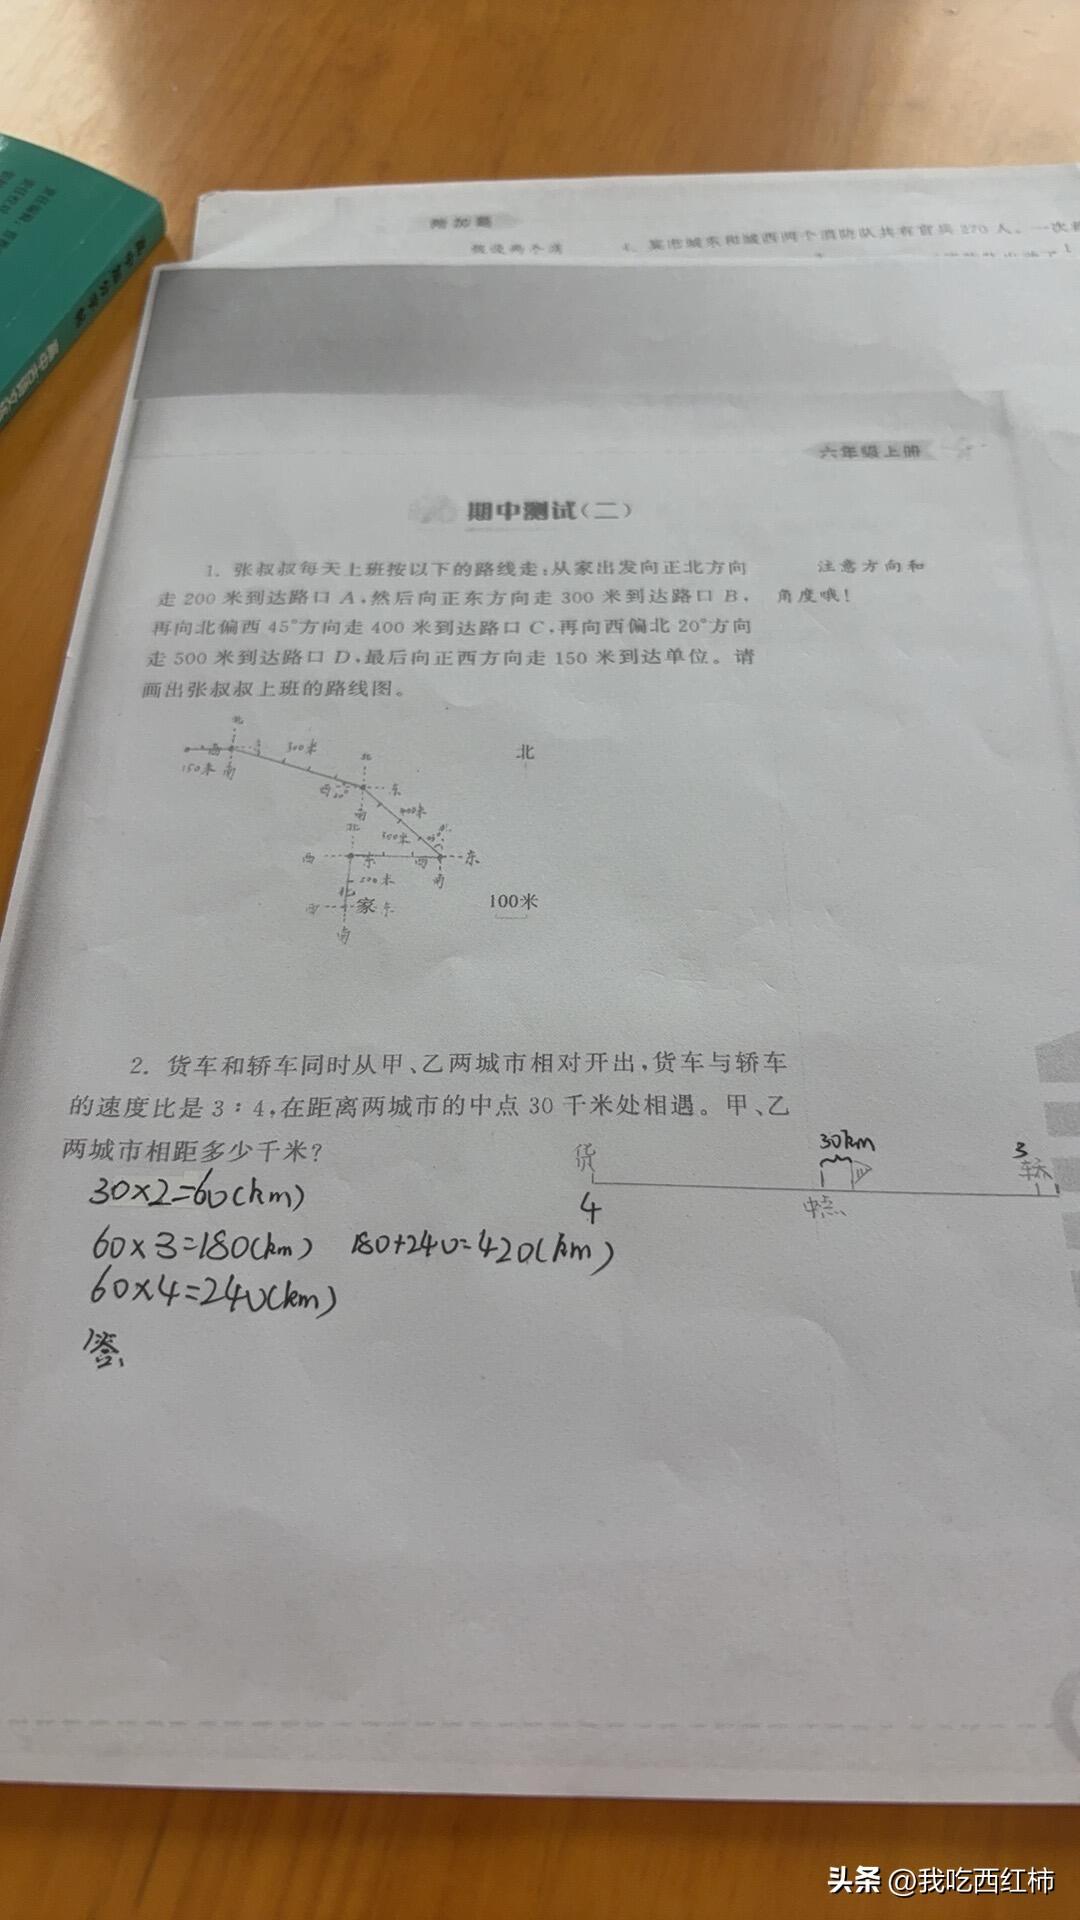 附加题
4. 某市城东和城西两个消防队共有官兵270人。一次
六年级上册
期中测试(二)
1. 张叔叔每天上班按以下的路线走:从家出发向正北方向
走200米到达路口A,然后向正东方向走300米到达路口B,
再向北偏西45°方向走400米到达路口C,再向西偏北20°方向
走500米到达路口D,最后向正西方向走150米到达单位。请
画出张叔叔上班的路线图。
注意方向和
角度哦!
北
西
300米
150米 南
北
西 20° 东
南
400米
北
300米 45°
西 东 西 东
200米 南
北
西 家 东
南
北
100米
2. 货车和轿车同时从甲、乙两城市相对开出,货车与轿车
的速度比是3:4,在距离两城市的中点30千米处相遇。甲、乙
两城市相距多少千米?
货 30km 3 轿
4 中点
30×2=60(km)
60×3=180(km) 180+240=420(km)
60×4=240(km)
答
头条 @我吃西红柿